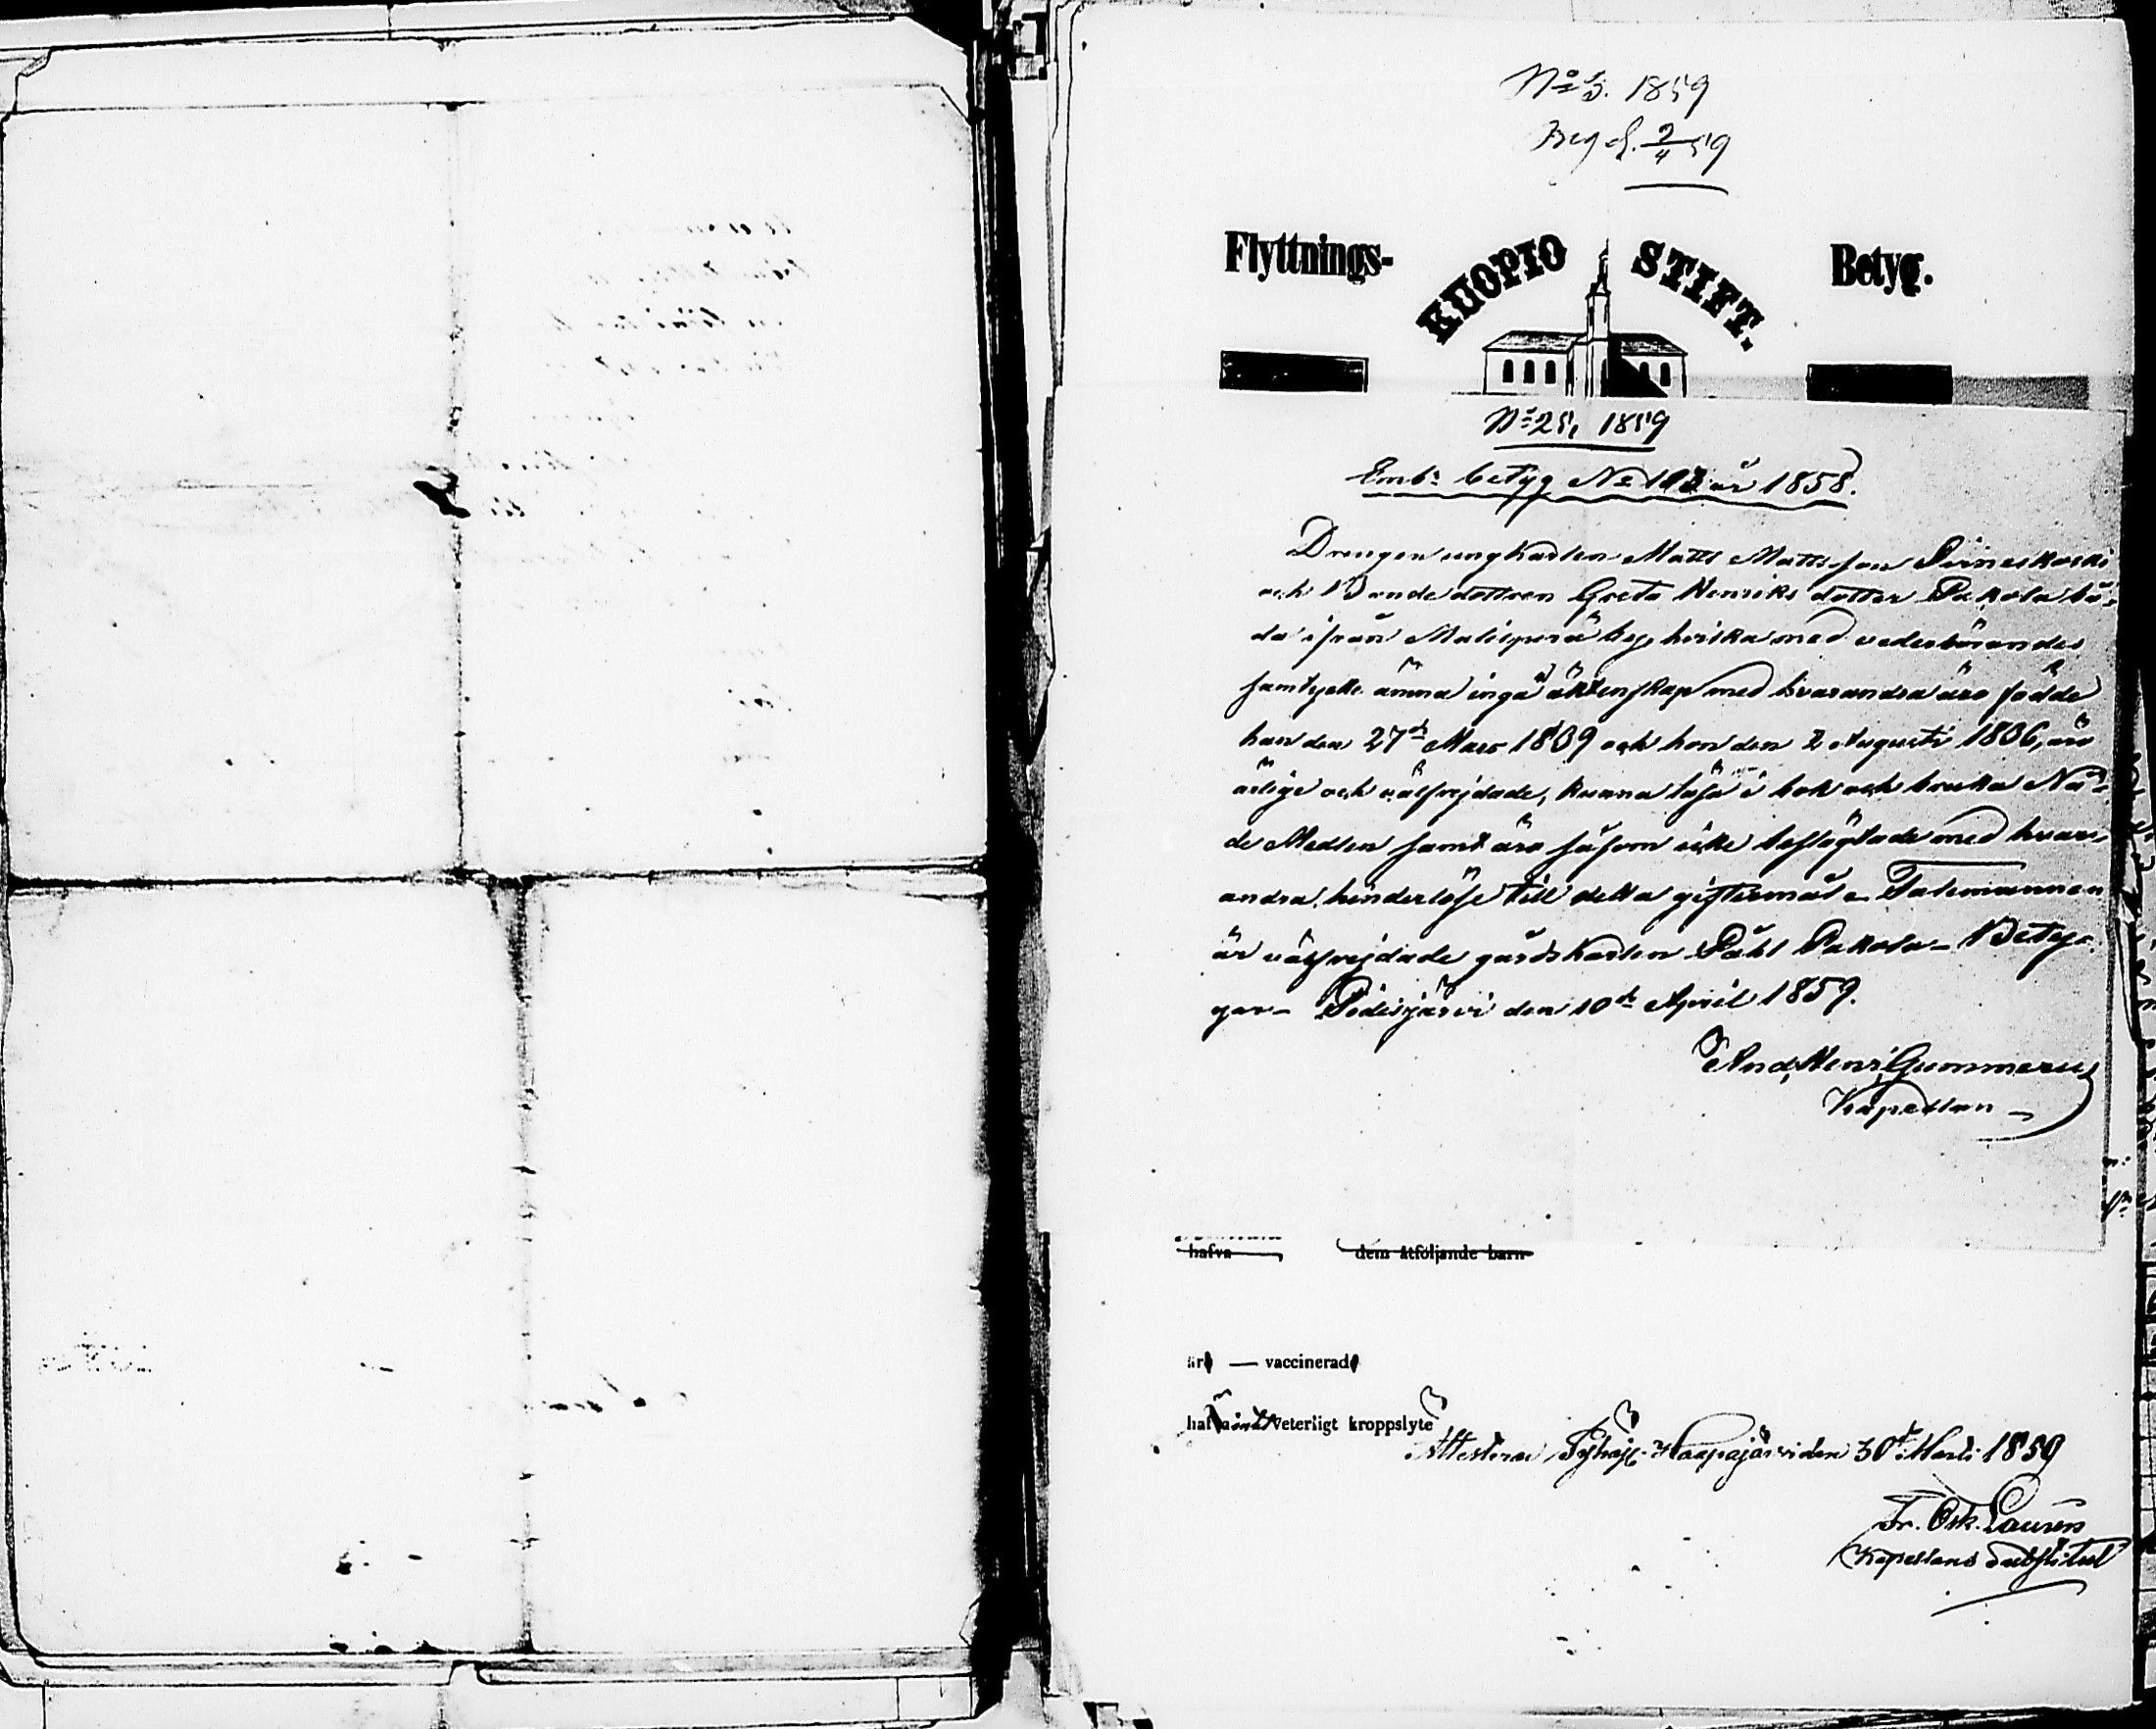 No 3. 1859
Flyttnings- KUOPIO STIFT. Betyg.
No 25, 1859
Emb: betyg No 103 år 1858.
Drengen ungkarlen Matts Mattsson Piineskoski
och Bondedottren Greta Henriksdotter Pakola bå-
da ifrån Malisperä by, hvilka med vederbörandes
samtycke ämna ingå äktenskap med hvarandra äro födde
han den 27de Mars 1839 och hon den 2 Augusti 1836, äro
ärlige och välfrejdade, kunna läsa i bok och bruka Nå-
de Medlen samt äro såsom icke beslägtade med hvar-
andra, hinderlöse till detta giftermål. Talemannen
är välfrejdade gårdskarlen Påhl Pakola. Bety-
gar. Pidisjärvi den 10de April 1859.
And. Henr. Gummerus
Kapellan
hafva dem åtföljande barn
äro — vaccinerade
hafva intet veterligt kroppslyte
Attesterar Pyhäj. Haapajärvi den 30de Martii 1859
Fr. Osk. Laurén
Kapellans Substitut